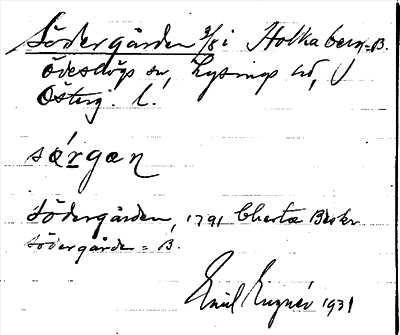 Södergården 3/8 i Holkaberg = B.
Ödeshögs sn, Lysings hd,
Österg. l.
sǿrgæn
Södergården, 1791 Charta Beskr
Södergården = B.
Emil 1931